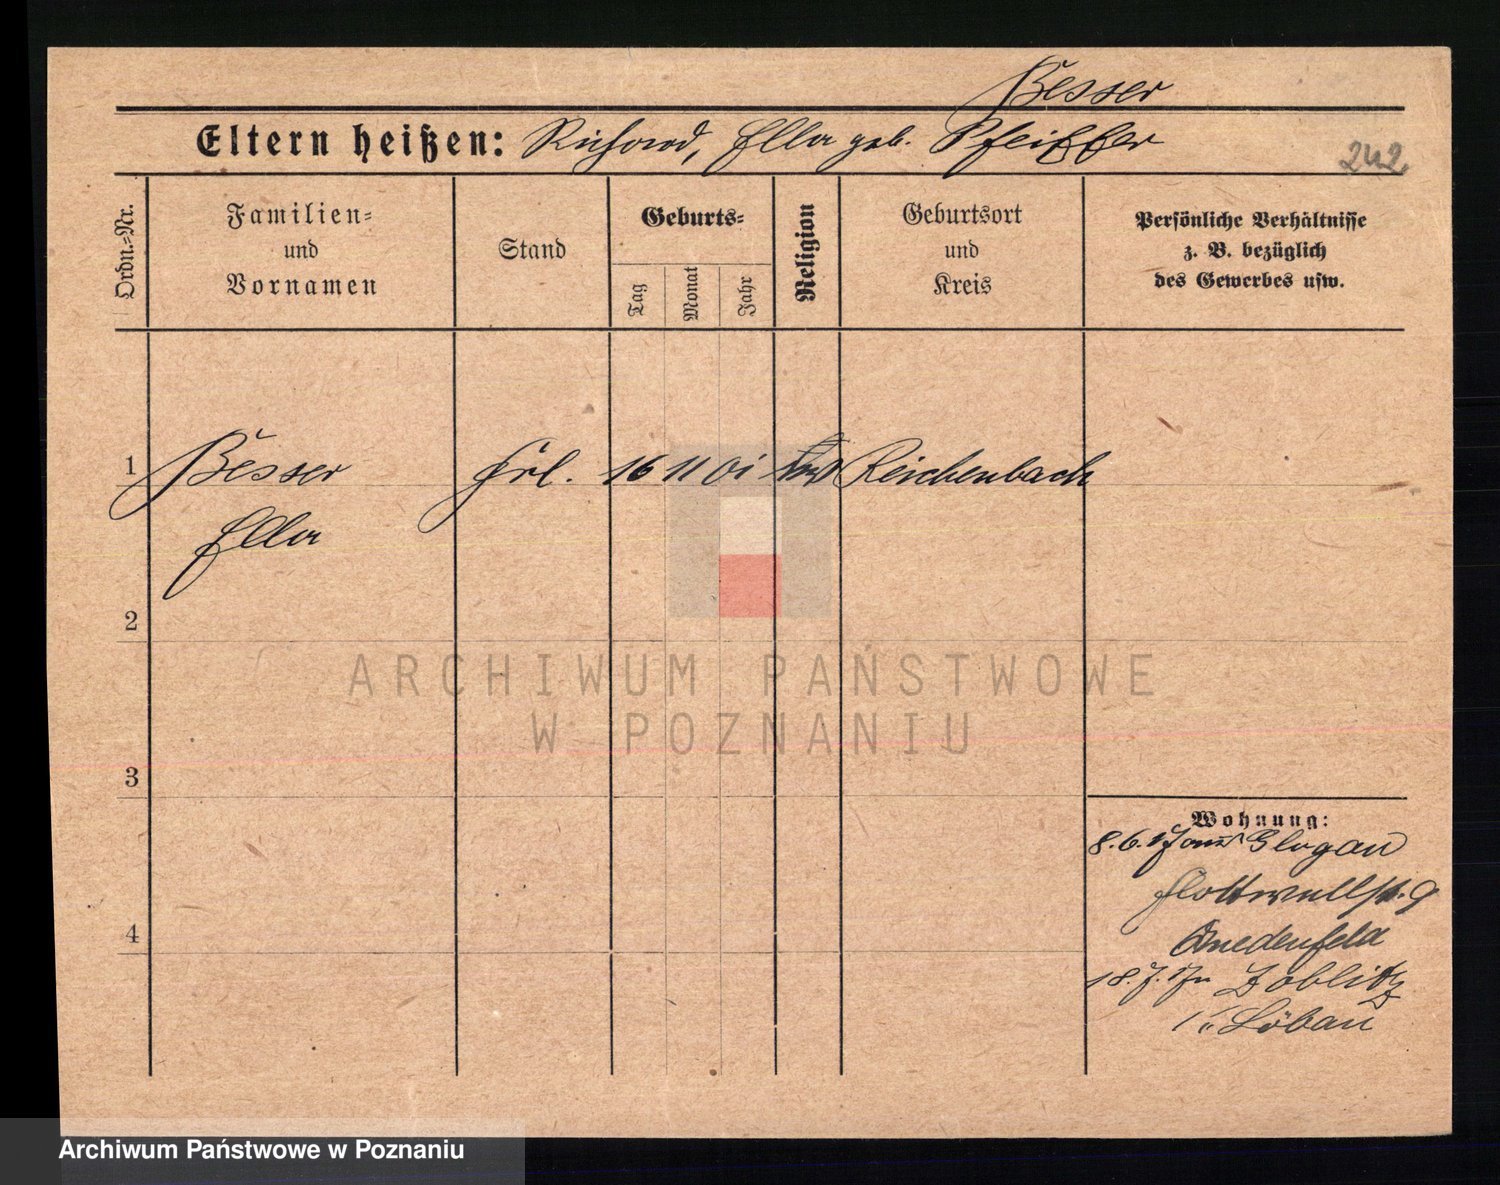 Besser
Eltern heißen: Richard, Ella geb. Pfeiffer
242
Ordn.=Nr.
Familien=
und
Vornamen
Stand
Geburts=
Tag
Monat
Jahr
Religion
Geburtsort
und
Kreis
Persönliche Verhältnisse
z. B. bezüglich
des Gewerbes usw.
1 Besser Frl. 16 11 01 Reichenbach
Ella
2
ARCHIWUM PAŃSTWOWE
W POZNANIU
3
Wohnung:
8.6. Glogau
Flottwellstr. 9
4
18.7. Zoblitz
Löbau
Archiwum Państwowe w Poznaniu